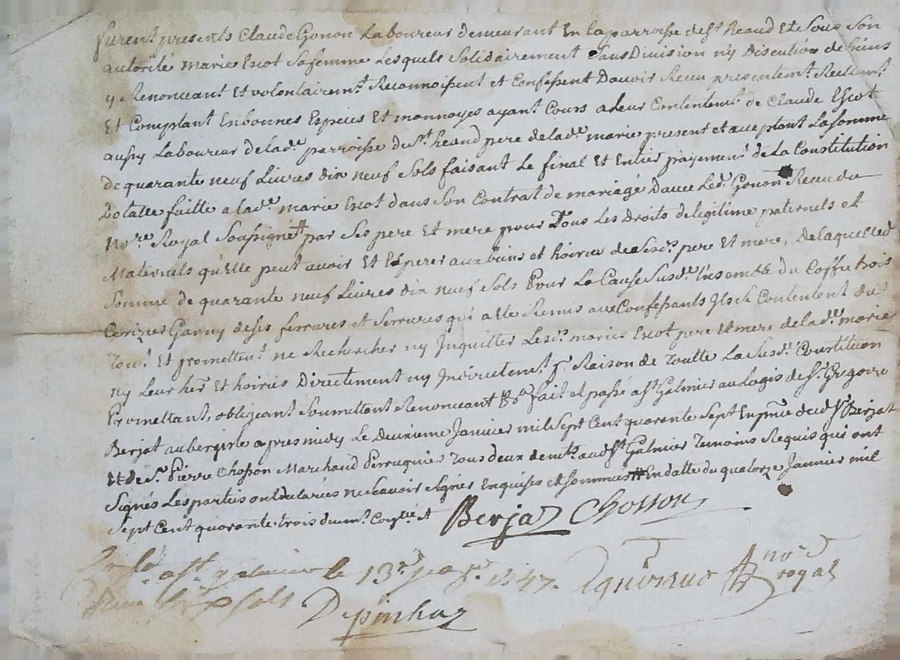 furent presents Claude Gonon Laboureur demeurant En la parroisse de st heaud Et de Sous Son
autorité marie Escot Safemme Lesquels Solidairement Sans Division ny Discution de biens
y Renonceant Et volontairemt Reconnoissent et Confessent Davoir Receu presentemt Reelemt
Et Comptant En bonnes Especes Et monnoyes ayant Cours a Leur Contentemt de Claude Escot
aussy Laboureur de lade parroisse de St heaud pere de lade marie present et acceptant La Somme
de quarante neuf Livres dix neuf Sols faisant Le final Et Entier payement de La Constitution
Dotalle faitte a lade marie Escot dans Son Contrat de mariage Davec Led Gonon Receu du
nore Royal Soussigné par Ses pere Et mere pour Tous Les Droits de legitime paternels et
Maternels qu'elle peut avoir Et Esperer aux biens et hoiries de Sesd pere Et mere, de laquelled
Somme de quarante neuf Livres dix neuf Sols Pour La Cause Susde Ensemble du Coffre bois
Cerizier Garny de Ses ferrures et Serrures qui a Ete Remis aux Confessants Ils Se Contentent du
Tout Et promettent ne Rechercher ny Inquietter Lesd maries Escot pere Et mere de lade marie
ny Leur hers Et hoiries Directement ny Indirectemt pr Raison de Toutte La Susde Constitution
Promettant, obligeant Soumettant Renonceant fait et passé a St Galmier au Logis de Sr Gregoire
Berjat aubergiste apres midy Le deuxieme Janvier mil Sept Cent quarante Sept En pnce dud Sr Berjat
Et de Sr Pierre Chosson Marchand Perruquier Tous deux de aud St Galmier Temoins Requis qui ont
Signés Les parties ont declarées ne Scavoir Signer Enquises et Sommées En datte du quatorze Janvier mil
Sept Cent quarante trois
Berjat Chosson
a St galmier le 13e 1747.
sols Depinhac nore royal